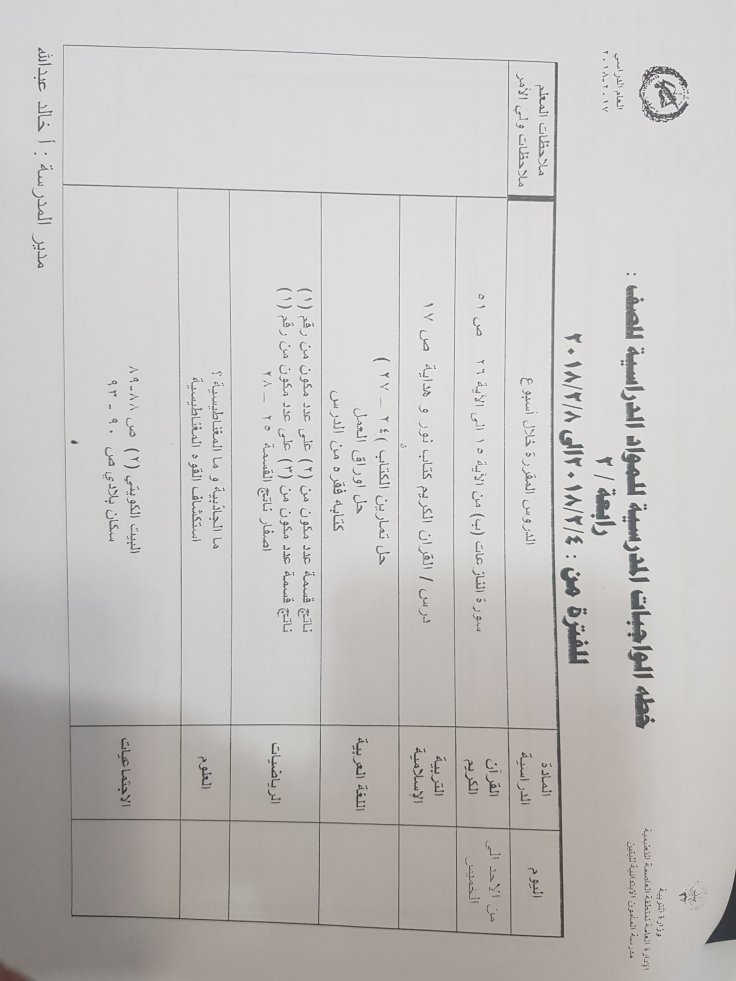 وزارة التربية
الإدارة العامة لمنطقة العاصمة التعليمية
مدرسة المأمون الابتدائية للبنين
العام الدراسي
٢٠١٧ـ٢٠١٨
خطه الواجبات المدرسية للمواد الدراسية للصف :
رابعة / ٢
للفترة من : ٢٠١٨/٢/٤ الى ٢٠١٨/٢/٨
اليوم
المادة الدراسية
الدروس المقررة خلال أسبوع
ملاحظات المعلم
ملاحظات ولي الأمر
من الاحد الي
الخميس
القرآن
الكريم
سورة النازعات (ب) من الآية ١٥ الى الآية ٢٦ ص ٥١
التربية
الإسلامية
درس / القران الكريم كتاب نور و هداية ص ١٧
اللغة العربية
حل تمارين الكتاب )٢٤ _ ٢٧ (
حل اوراق العمل
كتابه فقره من الدرس
الرياضيات
ناتج قسمة عدد مكون من (٢) على عدد مكون من رقم (١)
ناتج قسمة عدد مكون من (٣) على عدد مكون من رقم (١)
اصفار ناتج القسمة ٢٥ _ ٢٨
العلوم
ما الجاذبية و ما المغناطيسية ؟
استكشاف القوه المغناطيسية
الاجتماعيات
البيت الكويتي (٢) ص ٨٨-٨٩
سكان بلادي ص ٩٠ - ٩٣
مدير المدرسة : أ خالد عبدالله